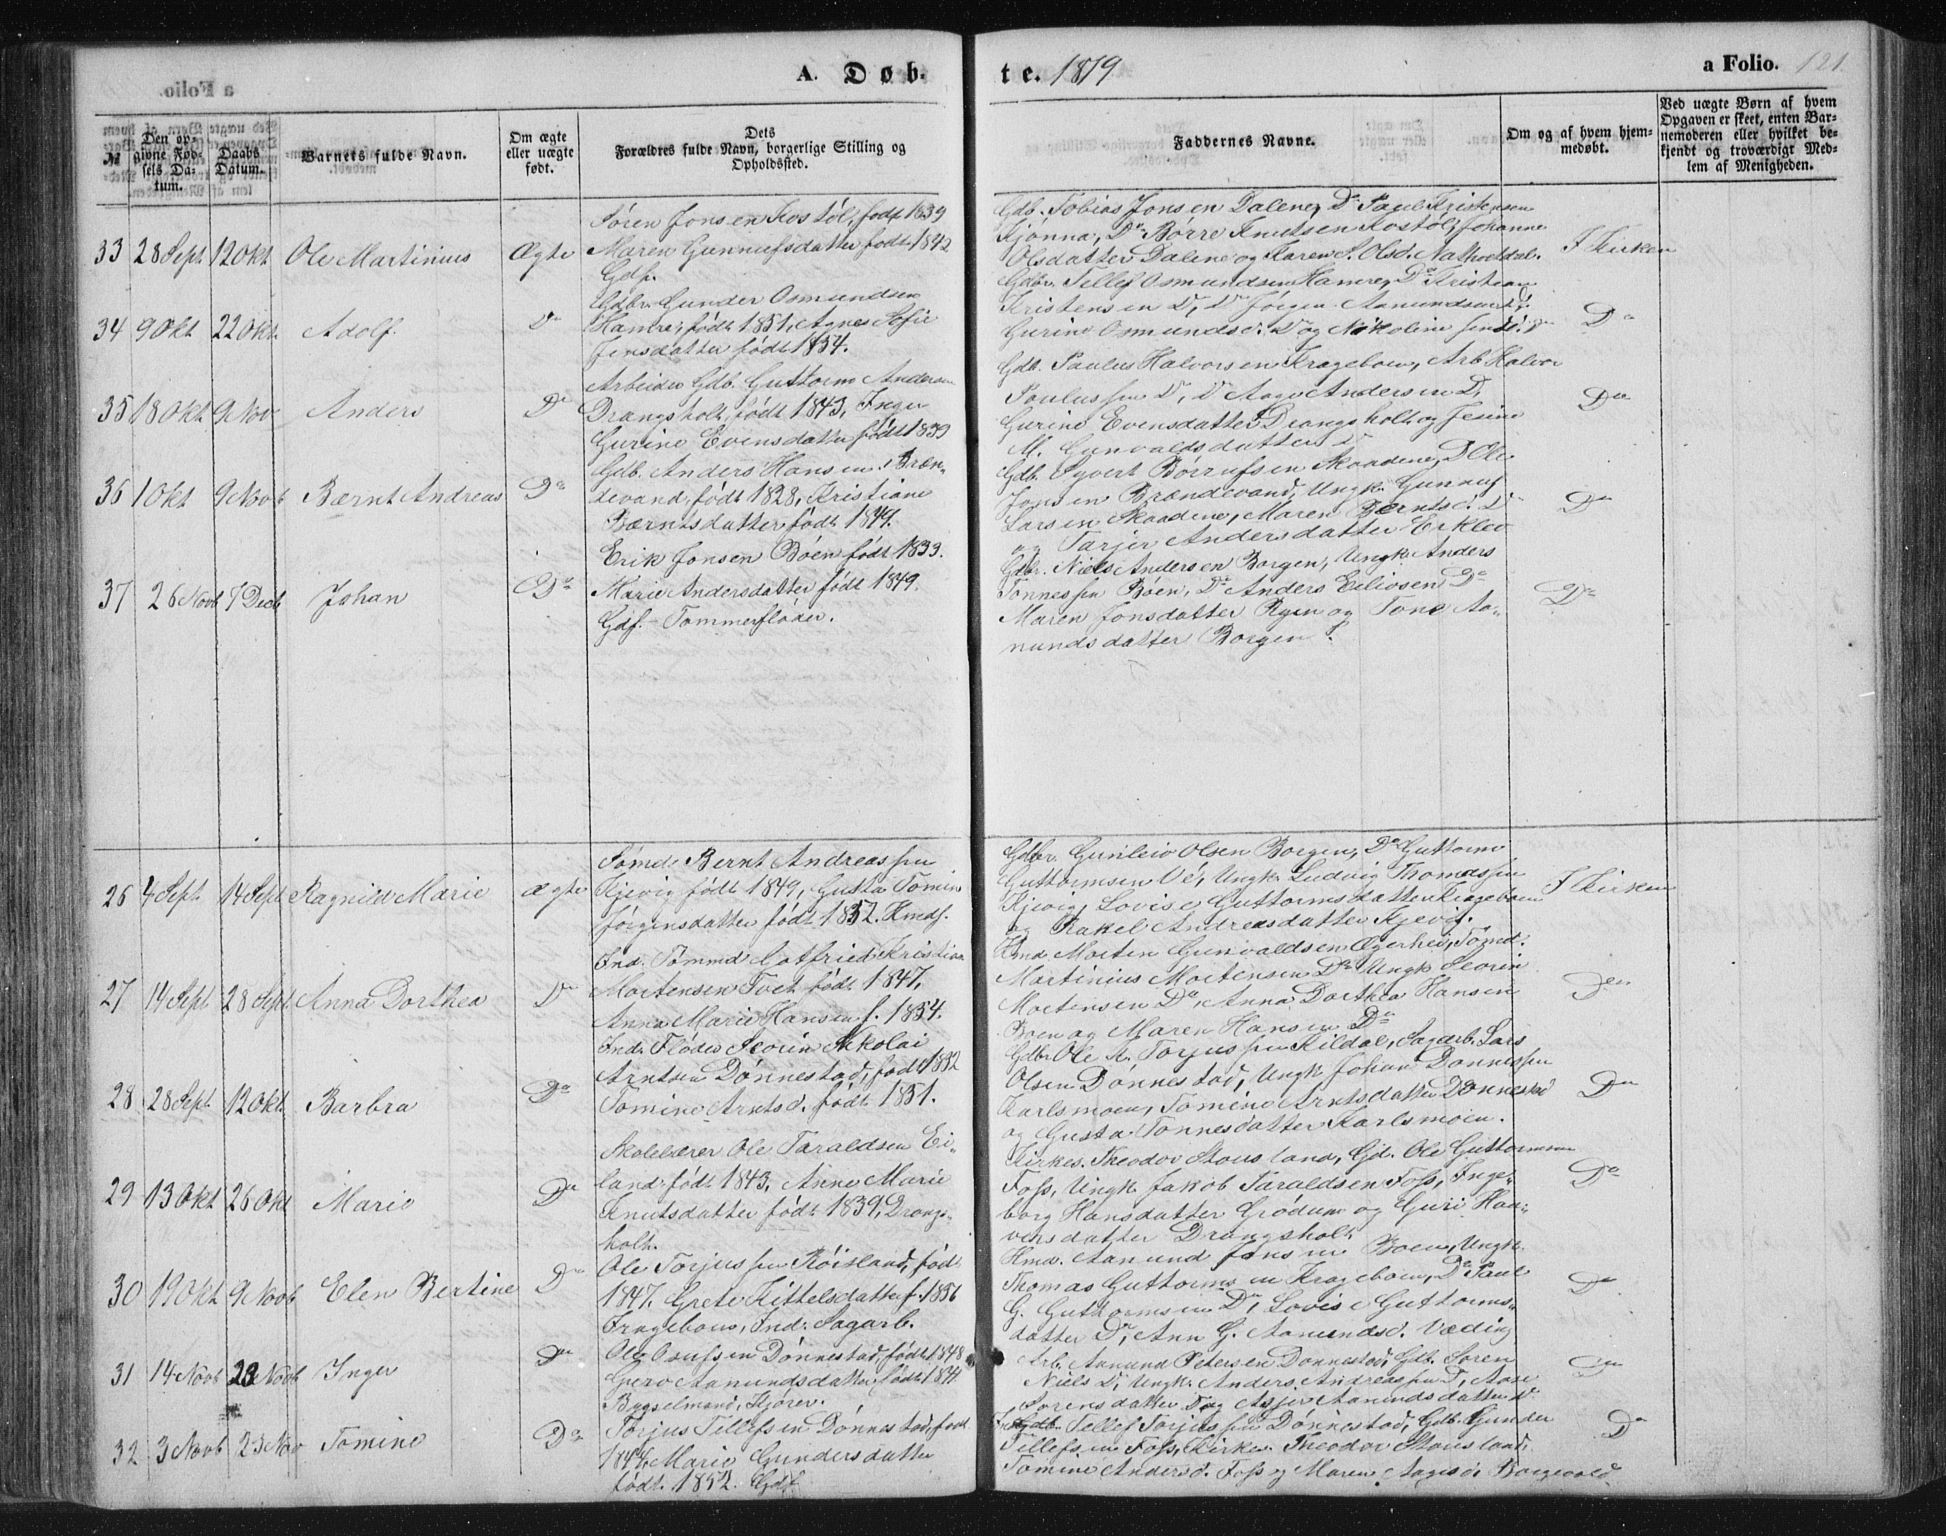 A. Døb-
te. 1879
a Folio. 121.
№
Den opgivne Fødsels Datum.
Daabs Datum.
Barnets fulde Navn.
Om ægte eller uægte født.
Dets Forældres fulde Navn, borgerlige Stilling og Opholdssted.
Faddernes Navne.
Om og af hvem hjemmedøbt.
Ved uægte Børn af hvem Opgaven er skeet, enten Barnemoderen eller hvilket bekjendt og troværdigt Medlem af Menigheden.
33 28 Sept 12 Okt Ole Martinius Ægte
Søren Jonsen Kostøl, født 1839
Maren Gunnufsdatter født 1842
Gdf.
Gdb. Tobias Jonsen Dalene, Do Paul Kristensen
Kjønna, Do Børre Knutsen Kostøl, Johanne
Olsdatter Dalene og Karen S. Olsd.
I Kirken
34 9 Okt 22 Okt. Adolf. Do
Gdbr. Gunder Osmundsen
Hamre, født 1851, Agnes Sofie
Jensdatter født 1854.
Gdbr. Tellef Osmundsen Hamre, Do Kristian
Kristensen Do, Do Jørgen Aanundsen Do,
Gurine Osmundsd. Do og Nikoline
Do
35 18 Okt 9 Nov Anders Do
Arbeider Gdb. Guttorm Andersen
Drangsholt, født 1843, Inger
Gurine Evensdatter født 1839
Gdb. Paulus Halvorsen Krageboen, Arb. Halvor
Paulussen Do, Do Aage Andersen D,
Gurine Evensdatter Drangsholt og Jesine
M. Gunvaldsdatter D
Do
36 1 Okt 9 Novb Bærnt Andreas Do
Gdb. Anders Hansen Bræn-
devand, født 1828, Kristiane
Bærntsdatter født 1849.
Gdb. Syvert Børrufsen Skaadene, D Ole
Jonsen Brændevand, Ungk. Gunnuf
Larsen Skaadene, Maren Bærntsd. D
og Tarjer Andersdatter Erklev
Do
37 26 Novb 7 Decb Johan Do
Erik Jonsen Bøen født 1833.
Marie Andersdatter født 1849.
Gdf. Tømmerfløder.
Gdbr. Niels Andersen Borgen, Ungk. Anders
Tønnessen Bøen, Do Anders Eilivsen Do
Maren Jonsdatter Ryen og Tone Aa-
nundsdatter Borgen.
Do
26 4 Sept 14 Sept Ragnild Marie ægte
Tømd. Bernt Andreassen
Kjevig født 1849, Gusta Tomine
Jørgensdatter født 1852. Hmdf.
Gdbr. Gunleiv Olsen Borgen, Do Guttorm
Guttormsen Ve, Ungk. Ludvig Thomassen
Kjevig, Lovise Guttormsdatter Krageboen
og Rakel Andreasdatter Kjevig.
I Kirken
27 14 Sept 28 Sept. Anna Dorthea Do
Ind. Tømmd Gotfried Kristian
Mortensen Tvet født 1847,
Anna Marie Hansen f. 1854.
Hmd. Morten Gunvaldsen Ægerhei, Tømd.
Martinius Mortensen Do Ungk Severin
Mortensen Do, Anna Dorthea Hansen
Boen og Maren Hansen Do
Do
28 28 Sept. 12 Okt. Barbra Do
Ind. Fløder Severin Nikolai
Arntsen Dønnestad, født 1852
Tomine Arntsd. født 1851.
Gdbr. Ole N. Torjussen Kildal, Sagarb. Lars
Olsen Dønnestad, Ungk Johan Dønnessen
Karlsmoen, Tomine Arntsdatter Dønnestad
og Gusta Tønnesdatter Karlsmoen.
Do
29 13 Okt 26 Okt Marie Do
Skolelærer Ole Taraldsen Ei-
land født 1843, Anne Marie
Knutsdatter født 1839, Drangs-
holt.
Kirkes. Theodor Stousland, Gd. Ole Guttormsen
Foss, Ungk. Jakob Taraldsen Foss, Inge-
borg Hansdatter Grødum og Guri Haa-
vorsdatter Drangsholt.
Do
30 19 Okt 9 Novb Elen Bertine Do
Ole Torjussen Røisland, født
1847, Grete Kittelsdatter f. 1856
Krageboen, Ind. Sagarb.
Hmd. Aanund Jonsen Boen, Ungk.
Thomas Guttormsen Krageboen, Do Paul
G. Guttormsen Do, Lovise Guttorms-
datter Do, Ann G. Aanundsd. Væding
Do
31 14 Novb 23 Novb Inger Do
Ole Osufsen Dønnestad, født 1848
Guro Aanundsdatter født 1844
Bygselmand, Kjører.
Arb. Aanund Petersen Dønnestad, Gdb. Søren
Niels D, Ungk. Anders Andreassen D, Aase
Sørensdatter D og Asjer Aanundsdatter D
Do
32 3 Novb 23 Nov Tomine Do
Torjus Tellefsen Dønnestad, født
1844, Marie Gundersdatter
født 1852. Gdf.
Gdb. Tellef Torjussen Dønnestad, Gdb. Gunder
Tellefsen Foss, Kirkes. Theodor Stousland,
Tomine Andersd. Foss og Maren Aagesd. Borgevold
Do